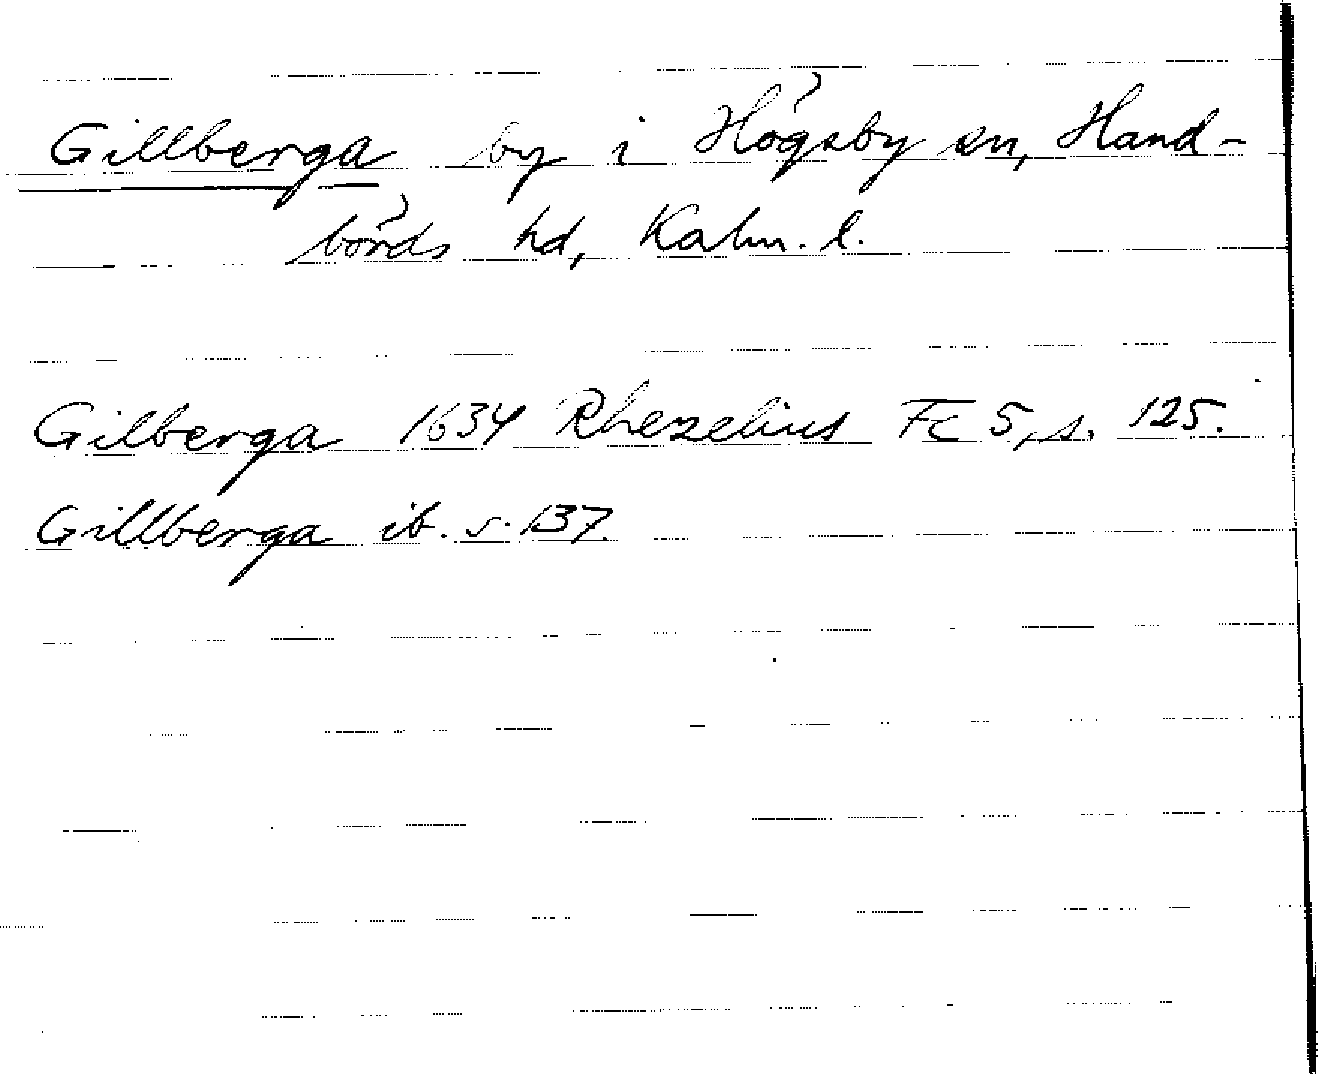 Gillberga by i Högsby sn, Hand-
börds hd, Kalm. l.
Gilberga 1634 Rhezelius Fc 5, s. 125.
Gillberga ib. s. 137.